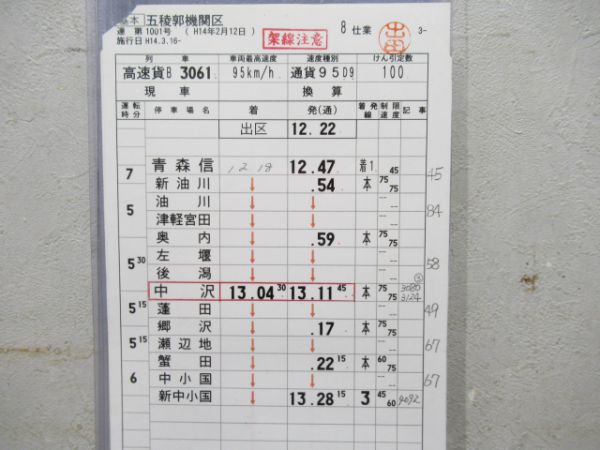 基本 五稜郭機関区
運 第1001号 ( H14年2月12日 )
施行日 H14.3.16-
架線注意
8 仕業
3-
列車 車両最高速度 速度種別 けん引定数
高速貨B 3061 95km/h 通貨95D9 100
現車 換算
運転時分 停車場名 着 発(通) 着発線 制限速度 記事
出区 12.22
青森信 12.47 着1 45
7 45
新油川 ↓ .54 本 75 75
油川 ↓ ↓
5 84
津軽宮田 ↓ ↓
奥内 ↓ .59 本 75 75
左堰 ↓ ↓
5 30 58
後潟 ↓ ↓
中沢 13.04 30 13.11 45 本 75 75 3080 3124
蓬田 ↓ ↓
5 15 49
郷沢 ↓ .17 本 75 75
瀬辺地 ↓ ↓
5 15 67
蟹田 ↓ .22 15 本 60 75
中小国 ↓ ↓
6 67
新中小国 ↓ 13.28 15 3 45 60